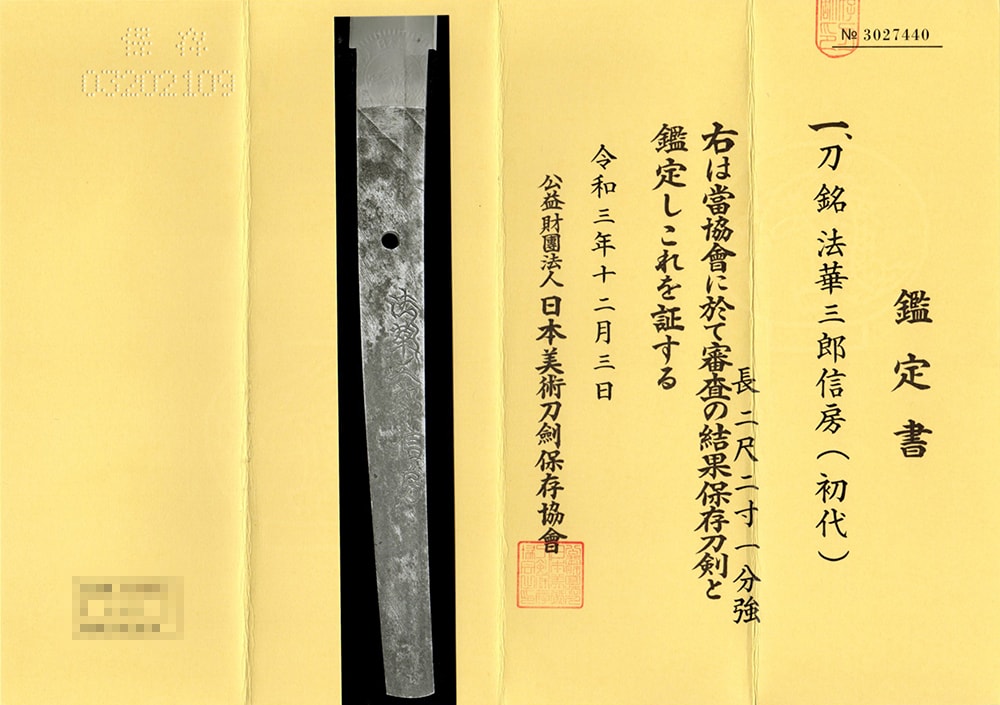 № 3027440
鑑定書
一、刀 銘 法華三郎信房(初代)
長 二尺二寸一分強
右は當協會に於て審査の結果保存刀剣と
鑑定しこれを証する
令和三年十二月三日
公益財團法人 日本美術刀劍保存協會
保存
03202109